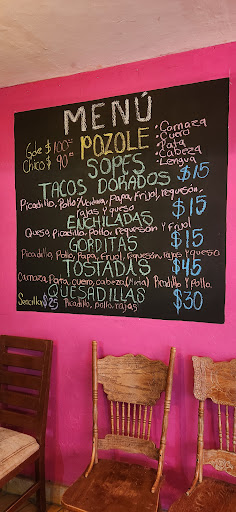 MENÚ
Gde $100.00 POZOLE
Chico $90.00
• Carnaza
• Cuero
• Pata
• Cabeza
• Lengua
SOPES
TACOS DORADOS $15
Picadillo, Pollo, Verdura, Papa, Frijol, requesón,
rajas y queso
ENCHILADAS $15
Queso, Picadillo, pollo, requesón y Frijol
GORDITAS $15
Picadillo, Pollo, Papa, Frijol, requesón, rajas y queso
TOSTADAS $45
Carnaza, Pata, cuero, cabeza Picadillo y Pollo.
QUESADILLAS $30
Sencilla $25 Picadillo, pollo, rajas